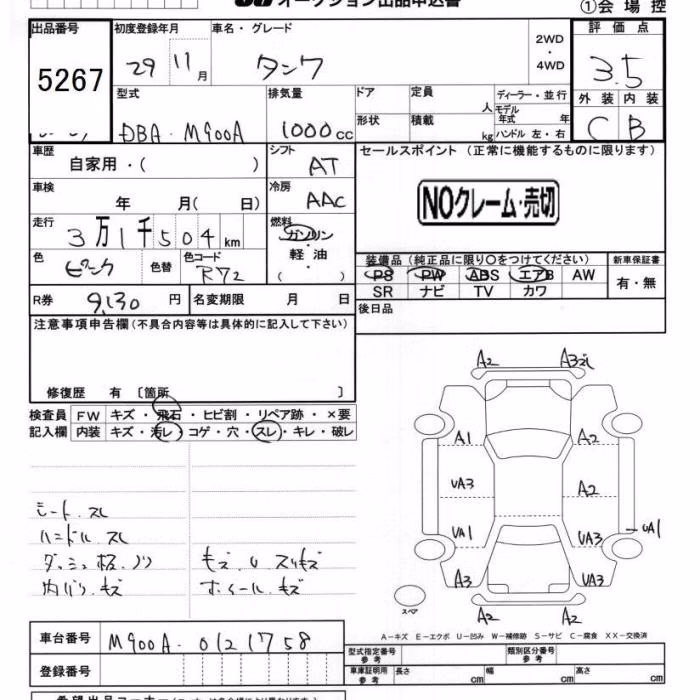 オークション出品申込書
①会場控
出品番号 初度登録年月 車名・グレード 2WD・4WD 評価点
5267 29 11月 タンク 3.5
外装 内装
C B
型式 排気量 ドア 定員 人 ディーラー・並行
DBA-M900A 1000cc 形状 積載 kg モデル年式 年
ハンドル 左・右
車歴 自家用・( ) シフト AT セールスポイント (正常に機能するものに限ります)
車検 年 月( 日) 冷房 AAC
NOクレーム・売切
走行 3万1千504km 燃料 ガソリン・軽油・( )
色 ピンク 色替 色コード R72
装備品(純正品に限り○をつけてください) 新車保証書
PS PW ABS エアB AW 有・無
SR ナビ TV カワ
R券 9,130円 名変期限 月 日 後日品
注意事項申告欄(不具合内容等は具体的に記入して下さい)
修復歴 有 〔箇所 〕
検査員 FW キズ・飛石・ヒビ割・リペア跡・×要
記入欄 内装 キズ・汚レ・コゲ・穴・スレ・キレ・破レ
シート.スレ
ハンドル.スレ
ダッシュ板.ノリ
内バリ.キズ
ホイール.キズ
A2
A1 A2
UA3 A2
UA1 UA3 UA1
A3 UA3
スペア A2 A2
A-キズ E-エクボ U-凹み W-補修跡 S-サビ C-腐食 XX-交換済
車台番号 M900A-0121758
型式指定番号 参考 類別区分番号 参考
登録番号
車庫証明用 参考 長さ cm 幅 cm 高さ cm